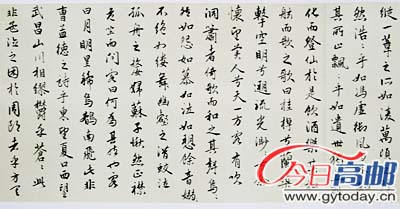 縱一葦之所如凌萬頃
然浩浩乎如馮虛御風
其所止飄飄乎如遺世
化而登仙於是飲酒樂甚
舷而歌之歌曰桂棹兮蘭
擊空明兮溯流光渺渺
懷望美人兮天一方客有吹
洞簫者倚歌而和之其聲嗚
然如怨如慕如泣如訴餘音嫋
不絕如縷舞幽壑之潛蛟泣
孤舟之嫠婦蘇子愀然正襟
危坐而問客曰何為其然也客
曰月明星稀烏鵲南飛此非
曹孟德之詩乎東望夏口西望
武昌山川相繆鬱乎蒼蒼此
非孟德之困於周郎者乎方其
今日高邮
www.gytoday.cn